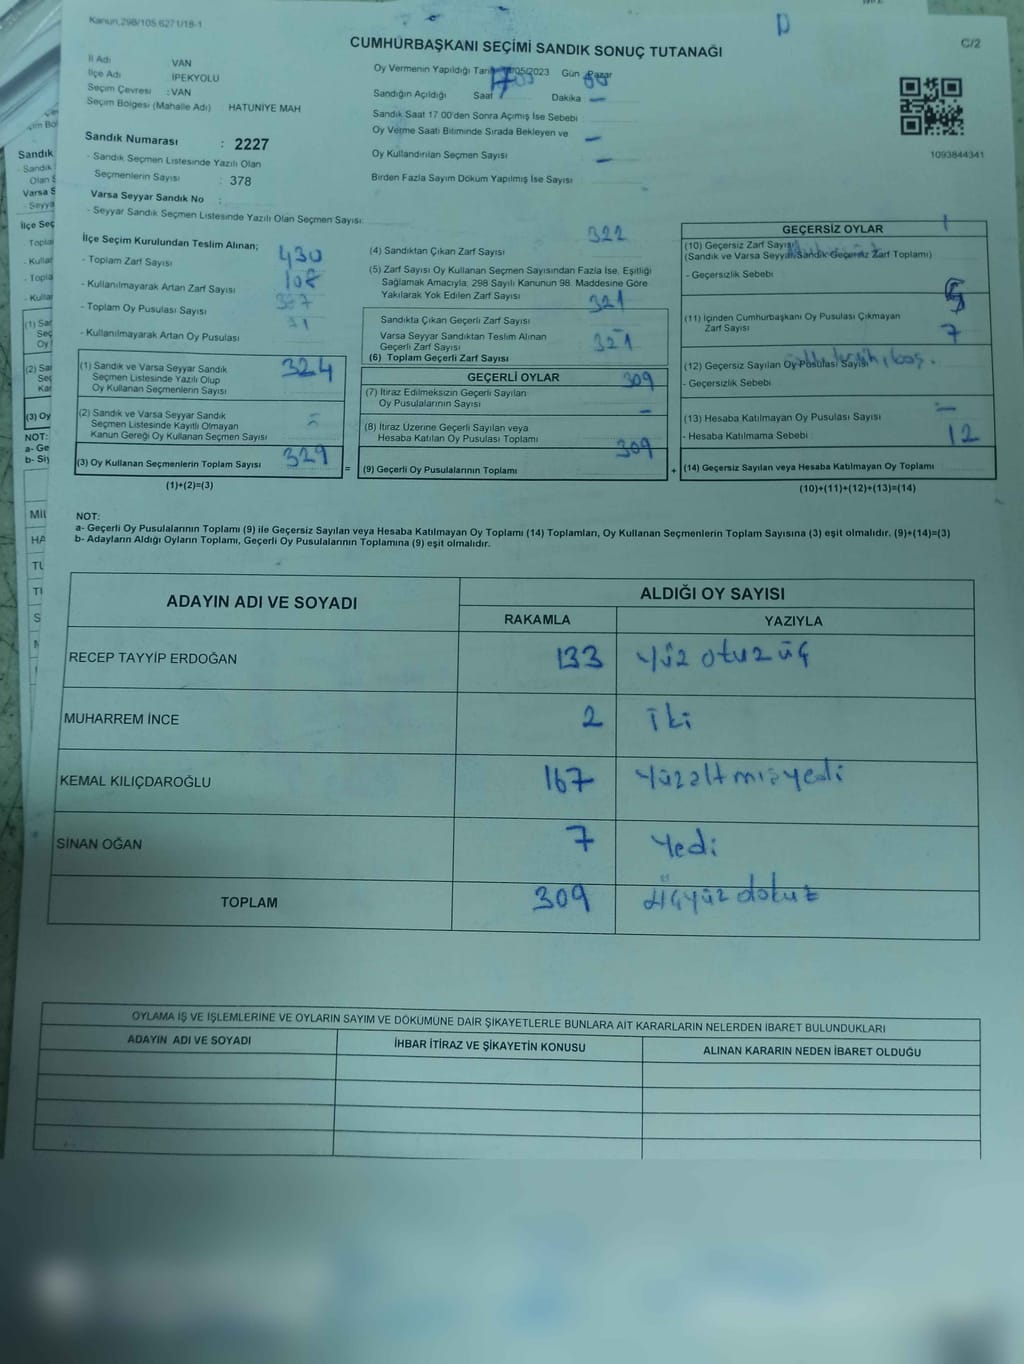 Kanun.298/105.6271/18-1
C/2
CUMHURBAŞKANI SEÇİMİ SANDIK SONUÇ TUTANAĞI
İl Adı VAN
İlçe Adı İPEKYOLU
Seçim Çevresi : VAN
Seçim Bölgesi (Mahalle Adı) HATUNİYE MAH
Sandık Numarası : 2227
- Sandık Seçmen Listesinde Yazılı Olan
Seçmenlerin Sayısı : 378
Varsa Seyyar Sandık No :
- Seyyar Sandık Seçmen Listesinde Yazılı Olan Seçmen Sayısı:
Oy Vermenin Yapıldığı Tarih /05/2023 Gün Pazar
Sandığın Açıldığı Saat Dakika
Sandık Saat 17.00'den Sonra Açımış İse Sebebi
Oy Verme Saati Bitiminde Sırada Bekleyen ve
Oy Kullandırılan Seçmen Sayısı
Birden Fazla Sayım Döküm Yapılmış İse Sayısı
1093844341
İlçe Seçim Kurulundan Teslim Alınan;
- Toplam Zarf Sayısı 430
- Kullanılmayarak Artan Zarf Sayısı 108
- Toplam Oy Pusulası Sayısı
- Kullanılmayarak Artan Oy Pusulası
(1) Sandık ve Varsa Seyyar Sandık
Seçmen Listesinde Yazılı Olup
Oy Kullanan Seçmenlerin Sayısı 324
(2) Sandık ve Varsa Seyyar Sandık
Seçmen Listesinde Kayıtlı Olmayan
Kanun Gereği Oy Kullanan Seçmen Sayısı
(3) Oy Kullanan Seçmenlerin Toplam Sayısı 329
(1)+(2)=(3)
=
(4) Sandıktan Çıkan Zarf Sayısı 322
(5) Zarf Sayısı Oy Kullanan Seçmen Sayısından Fazla İse, Eşitliği
Sağlamak Amacıyla, 298 Sayılı Kanunun 98. Maddesine Göre
Yakılarak Yok Edilen Zarf Sayısı
321
Sandıkta Çıkan Geçerli Zarf Sayısı
Varsa Seyyar Sandıktan Teslim Alınan
Geçerli Zarf Sayısı 321
(6) Toplam Geçerli Zarf Sayısı
GEÇERLİ OYLAR
309
(7) İtiraz Edilmeksizin Geçerli Sayılan
Oy Pusulalarının Sayısı
(8) İtiraz Üzerine Geçerli Sayılan veya
Hesaba Katılan Oy Pusulası Toplamı
309
(9) Geçerli Oy Pusulalarının Toplamı
+
GEÇERSİZ OYLAR
1
(10) Geçersiz Zarf Sayısı
(Sandık ve Varsa Seyyar Sandık Geçersiz Zarf Toplamı)
- Geçersizlik Sebebi
(11) İçinden Cumhurbaşkanı Oy Pusulası Çıkmayan
Zarf Sayısı
7
(12) Geçersiz Sayılan Oy Pusulası Sayısı
- Geçersizlik Sebebi
(13) Hesaba Katılmayan Oy Pusulası Sayısı
- Hesaba Katılmama Sebebi
12
(14) Geçersiz Sayılan veya Hesaba Katılmayan Oy Toplamı
(10)+(11)+(12)+(13)=(14)
NOT:
a- Geçerli Oy Pusulalarının Toplamı (9) ile Geçersiz Sayılan veya Hesaba Katılmayan Oy Toplamı (14) Toplamları, Oy Kullanan Seçmenlerin Toplam Sayısına (3) eşit olmalıdır. (9)+(14)=(3)
b- Adayların Aldığı Oyların Toplamı, Geçerli Oy Pusulalarının Toplamına (9) eşit olmalıdır.
ADAYIN ADI VE SOYADI ALDIĞI OY SAYISI
RAKAMLA YAZIYLA
RECEP TAYYİP ERDOĞAN 133 Yüz otuz üç
MUHARREM İNCE 2 İki
KEMAL KILIÇDAROĞLU 167 Yüzaltmışyedi
SİNAN OĞAN 7 Yedi
TOPLAM 309 Üçyüz dokuz
OYLAMA İŞ VE İŞLEMLERİNE VE OYLARIN SAYIM VE DÖKÜMÜNE DAİR ŞİKAYETLERLE BUNLARA AİT KARARLARIN NELERDEN İBARET BULUNDUKLARI
ADAYIN ADI VE SOYADI İHBAR İTİRAZ VE ŞİKAYETİN KONUSU ALINAN KARARIN NEDEN İBARET OLDUĞU